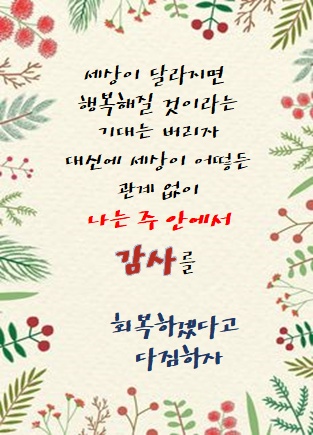 세상이 달라지면
행복해질 것이라는
기대는 버리자
대신에 세상이 어떻든
관계 없이
나는 주 안에서
감사를
회복하겠다고
다짐하자